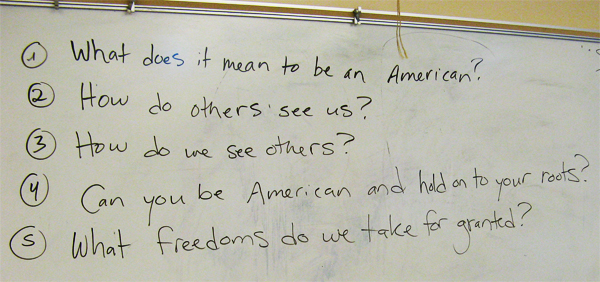 1 What does it mean to be an American?
2 How do others see us?
3 How do we see others?
4 Can you be American and hold on to your roots?
5 What freedoms do we take for granted?